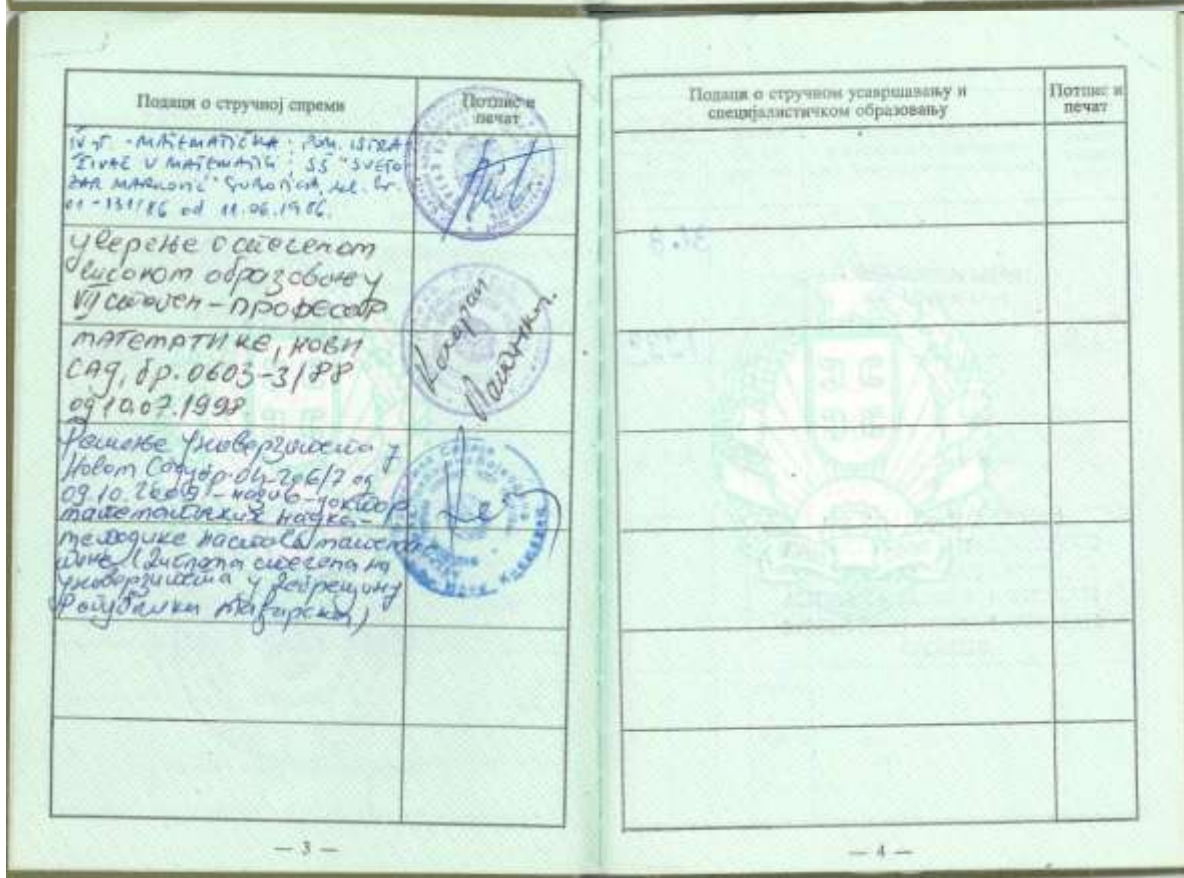 Подаци о стручној спреми
Потпис и
печат
IV ст. - MATEMATIČKA : POM. ISTRA
ŽIVAČ U MATEMATICI ; SŠ "SVETO
ZAR MARKOVIĆ" SUBOTICA, del. br.
01-131/86 od 11.06.1986.
Уверење о стеченом
високом образовању
VII степен - ПРОФЕСОР
МАТЕМАТИКЕ, НОВИ
САД, бр. 0603-3/88
од 10.07.1998
Решење Универзитета у
Новом Саду бр. 04-206/7 од
09.10.2009 - назив - доктор
математичких наука -
методике наставе матема
тике (диплома стечена на
универзитету у Дебрецину
Републики Мађарској)
— 3 —
Подаци о стручном усавршавању и
специјалистичком образовању
Потпис и
печат
— 4 —